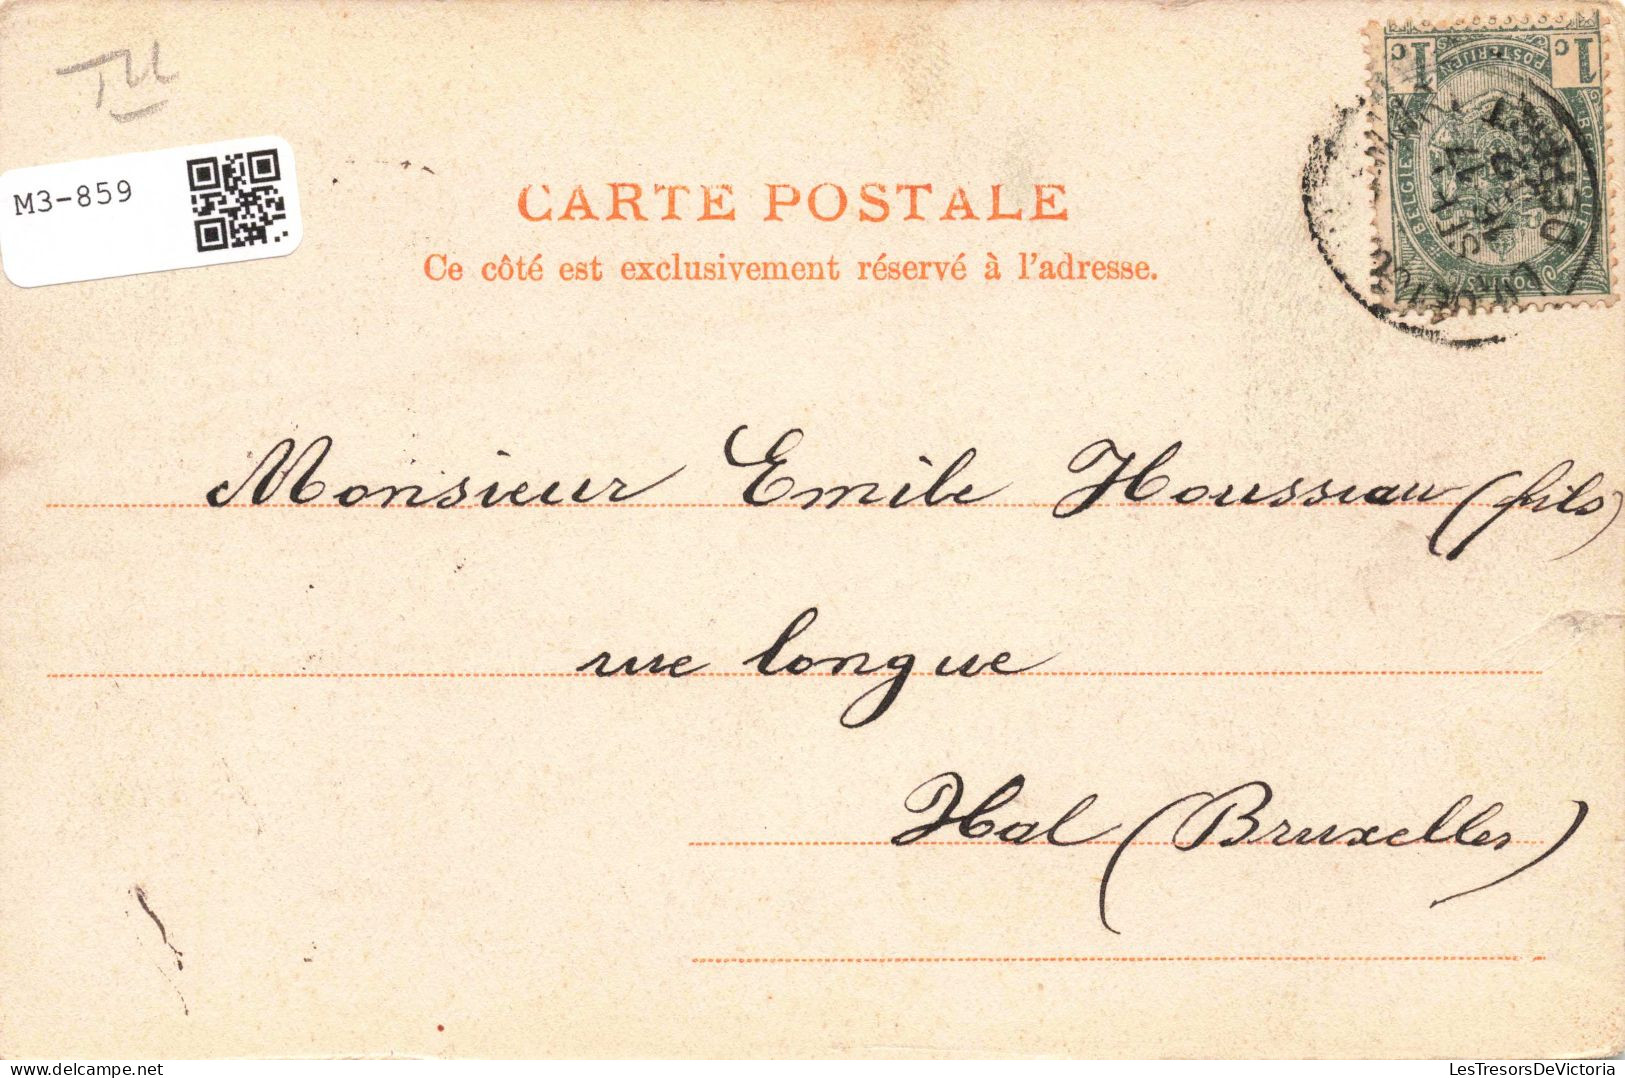 TU
M3-859
CARTE POSTALE
Ce côté est exclusivement réservé à l'adresse.
1c 1c
POSTERIJEN
BELGIE
POSTES
Monsieur Emile Houssiau (fils)
rue longue
Hal (Bruxelles)
LesTresorsDeVictoria